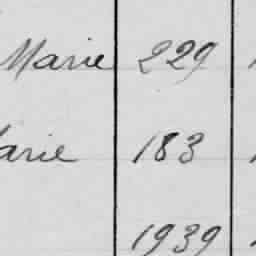 Marie 229
arie 183
1939